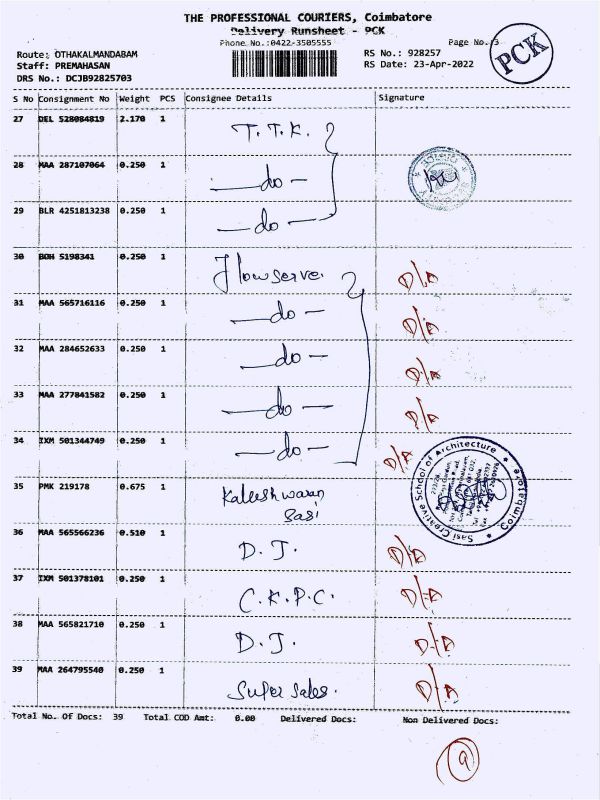 THE PROFESSIONAL COURIERS, Coimbatore
Delivery Runsheet - PCK
Phone No.:0422-3505555
Page No.:3
PCK
Route: OTHAKALMANDABAM
RS No.: 928257
Staff: PREMAHASAN
RS Date: 23-Apr-2022
DRS No.: DCJB92825703
S No Consignment No Weight PCS Consignee Details Signature
27 DEL 528084819 2.170 1 T.T.K.
28 MAA 287107064 0.250 1 —do—
29 BLR 4251813238 0.250 1 —do—
30 BOM 5198341 0.250 1 Flowserve. D/A
31 MAA 565716116 0.250 1 —do— D/A
32 MAA 284652633 0.250 1 —do— D/A
33 MAA 277841582 0.250 1 —do— D/A
34 IXM 501344749 0.250 1 —do— D/A
35 PMK 219178 0.675 1 Kaleeshwaran
Sasi
Sasi Creative School of Architecture
Coimbatore
36 MAA 565566236 0.510 1 D.J. D/A
37 IXM 501378101 0.250 1 C.K.P.C. D/A
38 MAA 565821710 0.250 1 D.J. D/A
39 MAA 264795540 0.250 1 Super Sales. D/A
Total No. Of Docs: 39 Total COD Amt: 0.00 Delivered Docs: Non Delivered Docs:
9